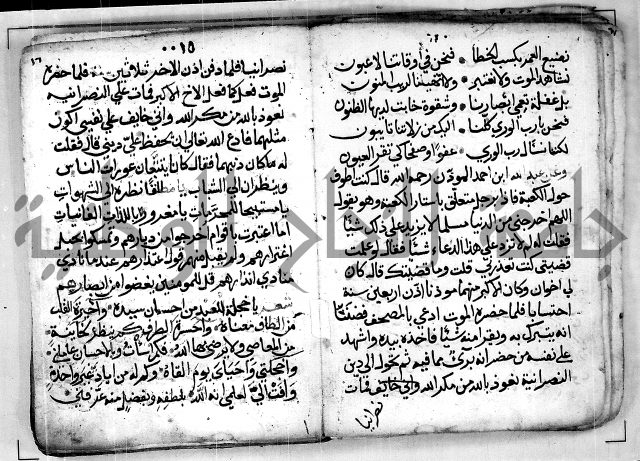 نضيع العمر بكسب الخطأ * فنحن في أوقاتنا لاعبون
نشاهد الموت ولا نعتبر * ولا لريب المنون
بل غفلة تعمي أبصارنا * وشقوة خابت لديها الظنون
فنحن يا رب الورى كلنا * إليك من زلاتنا تايبون
رب الورى * عفوا وصفحا كي تقر العيون
وعن عبد الله ابن احمد الموذن رحمه الله قال كنت اطوف
حول الكعبة فاذا برجل متعلق باستار الكعبة وهو يقول
اللهم اخرجني من الدنيا مسلما لا يزيد على ذلك شيئا
فقلت له لم لا تزد على هذا الدعاء شيئا فقال لو علمت
قضيتي كنت تعذرني قلت وما قضيتك قال كان
لي اخوان وكان الاكبر منهما موذنا اذن اربعين سنة
احتسابا فلما حضره الموت ادعي بالمصحف فظننا
انه يتبرك به وليقرا منه شيئا فاخذه بيده واشهد
على نفسه من حضر انه بري مما فيه ثم تحول الى دين
النصرانية نعوذ بالله من مكر الله واني خايف فمات
نصرانيا
٠٠١٥
نصرانيا فلما دفن اذن الاخر ثلاثين سنة فلما حضره
الموت فعل كما فعل الاخ الاكبر فمات على النصرانية
نعوذ بالله من مكر الله واني خايف على نفسي اكون
مثلهما فادع الله تعالى ان يحفظ علي ديني قال فقلت
له ما كان ذنبهما فقال كانا يتتبعان عورات الناس
وينظران الى الشباب يا مطلقا نظره الى الشهوات
يا مستبيحا للمحرمات يا مغرورا باللذات الفانيات
اما اعتبرت باقوام اخرجوا من ديارهم وتمسكوا بحبل
اغترارهم ولم يقبل منهم قول اعتذارهم عندما نادى
منادي انذارهم قل للمومنين يغضوا من ابصارهم
شعر يا خجلة العبد من احسان سيده * واحسرة القلب
من الطاف معناه * واحسرة الطرف كم يرنو لخاينة
من المعاصي ولا يرضى بها الله * فكم اسات وبالاحسان عاملني
واخجلتي واحيائي يوم القاه * وكم له من اياد غير واحدة
وافت الي تعلمني انه الله * بلطفه وبفضل منه عرفني